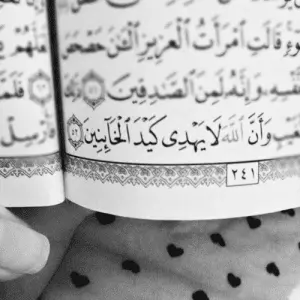 قَالَتِ ٱمْرَأَتُ ٱلْعَزِيزِ ٱلْـَٰٔنَ حَصْحَصَ
وَإِنَّهُۥ لَمِنَ ٱلصَّٰدِقِينَ ٥١
وَأَنَّ ٱللَّهَ لَا يَهْدِى كَيْدَ ٱلْخَآئِنِينَ ٥٢
٢٤١